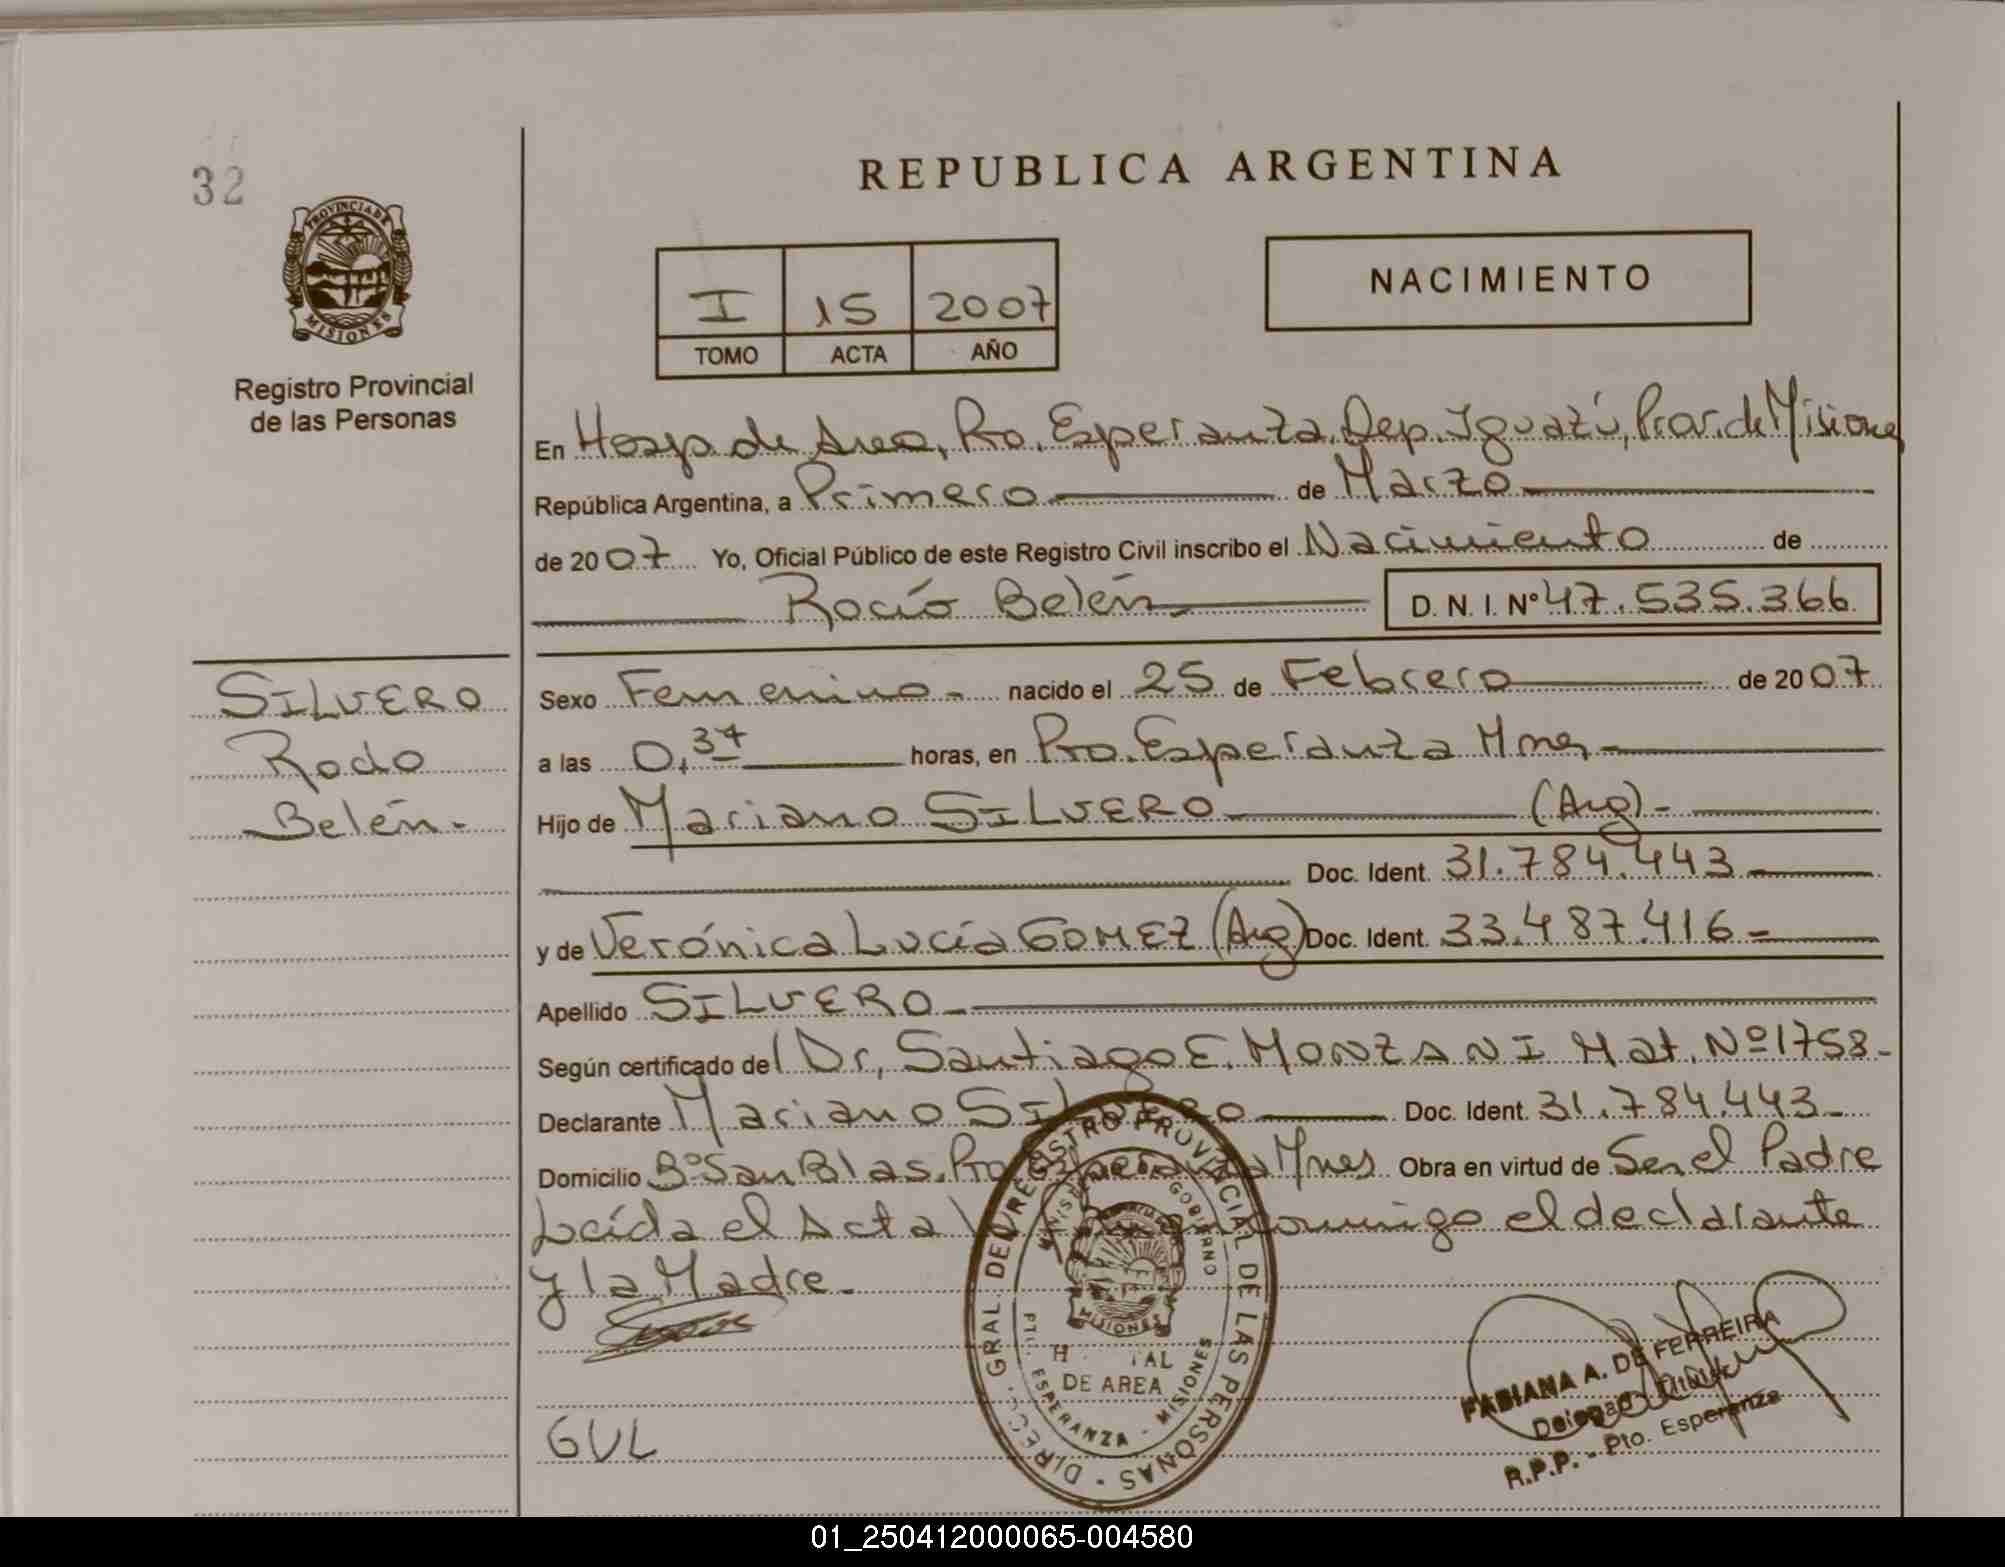 32
PROVINCIA DE
MISIONES
Registro Provincial
de las Personas
REPUBLICA ARGENTINA
I 15 2007
TOMO ACTA AÑO
NACIMIENTO
En Hosp. de Area, Pto. Esperanza, Dep. Iguazú, Prov. de Misiones
República Argentina, a Primero de Marzo
de 2007 Yo, Oficial Público de este Registro Civil inscribo el Nacimiento de
Rocío Belén D. N. I. Nº 47.535.366
SILVERO
Rocío
Belén.-
Sexo Femenino.- nacido el 25 de Febrero de 2007
a las 0,37 horas, en Pto. Esperanza Mnes,-
Hijo de Mariano SILVERO (Arg).-
Doc. Ident. 31.784.443
y de Verónica Lucía GOMEZ (Arg) Doc. Ident. 33.487.416
Apellido SILVERO
Según certificado del Dr, Santiago E. MONZANI Mat. Nº 1758-
Declarante Mariano SILVERO Doc. Ident. 31.784.443-
Domicilio Bº San Blas, Pto Esperanza Mnes Obra en virtud de Ser el Padre
Leída el Acta conmigo el declarante
y la Madre.
GVL
DIREC. GRAL. DEL REGISTRO PROVINCIAL DE LAS PERSONAS
MINISTERIO DE GOBIERNO
MISIONES
H TAL
DE AREA
PTO. ESPERANZA - MISIONES
FABIANA A. DE FERREIRA
Delegad
R.P.P. - Pto. Esperanza
01_250412000065-004580